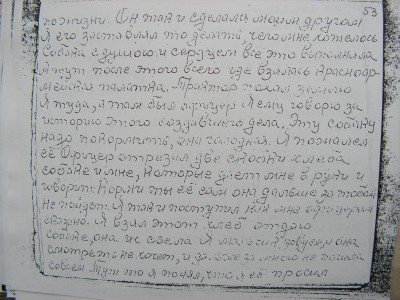 53
пожизни. Он так и сделался моим другом
Я его заставлял то делать чего мне хотелось
Собака с душою и сердцем все это выполняла
И вот после этого всего где взялась Красноар-
мейская палатка. Трактор пахал землю
Я туда, а там был офицер Я ему говорю за
историю этого создавшего дела. Эту собаку
надо покормить, она голодная. Я поднялся
её Офицер отрезил две скибки хлеба
собаке и мне, которые даёт мне в руки и
говорит: Корми ты её сам она дальше за тобой
не пойдет. Я так и поступил как мне офицером
сказано. Я взял этот хлеб отдаю
собаке, она их съела Я зову, а она
смотреть не хочет, и дальше за мною не пошла
совсем Тут то я понял, что я её просил